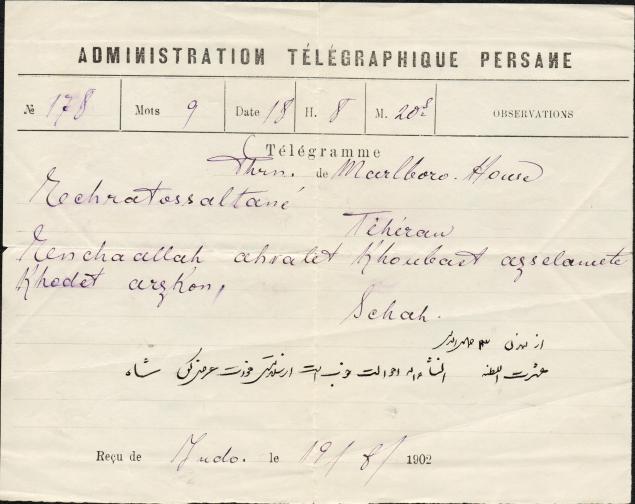 ADMINISTRATION TÉLÉGRAPHIQUE PERSANE
№ 178 Mots 9 Date 18 H. 8 M. 20 s OBSERVATIONS
Télégramme
Thrn. de Marlboro. House
Echratossaltané
Téhéran
Enschaallah ahvalet Khoubast azselamete
Khodet arzkon,
Schah.
از لندن ۱۳
عشرت السلطنه انشاءالله احوالت خوب است از سلامتی خودت عرض کن شاه
Reçu de Indo. le 19/8/ 1902